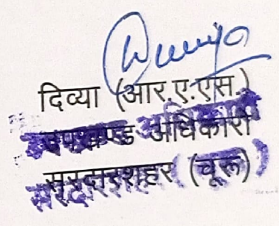 दिव्या (आर.ए.एस.)
उपखण्ड अधिकारी
सरदारशहर (चूरू)